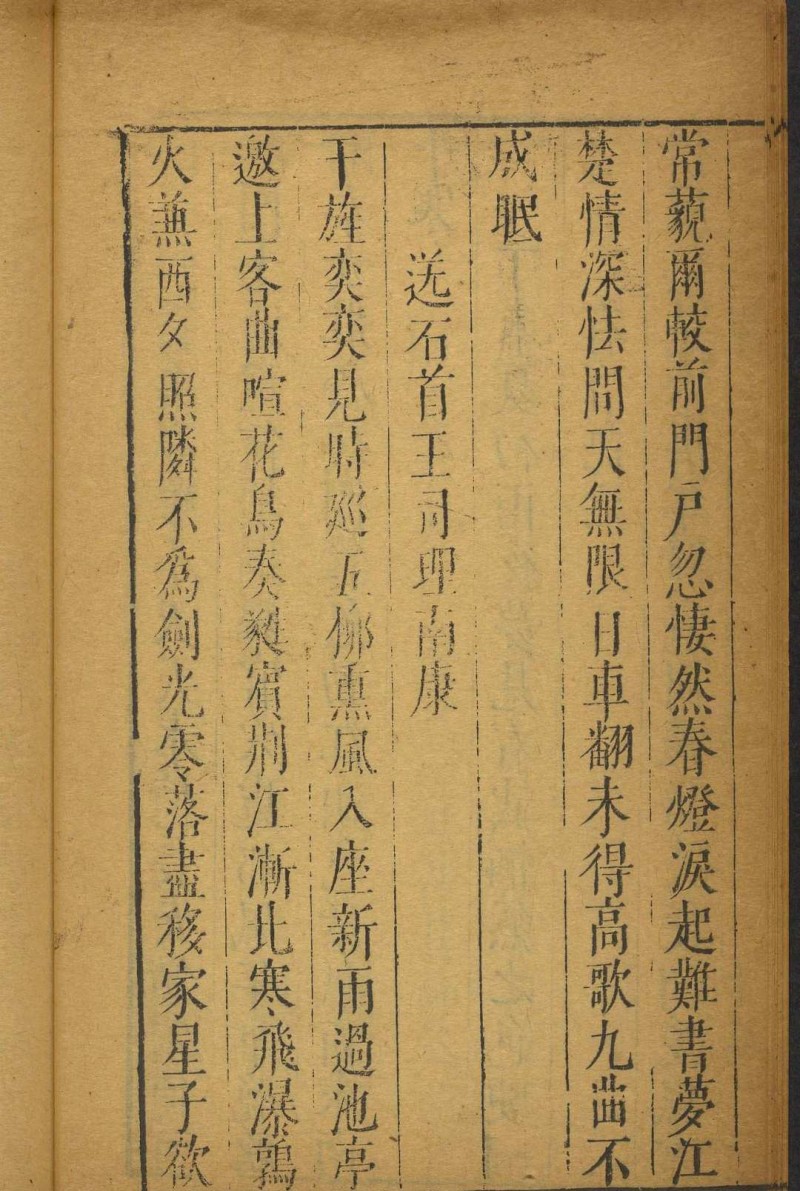 常藐爾較前門戶忽悽然春燈淚起難書夢江
楚情深怯問天無限日車翻未得高歌九曲不
成眠
送石首王司理南康
干旌奕奕見時廵五柳熏風入座新雨過池亭
邀上客曲喧花鳥奏蕤賓荆江漸比寒飛瀑鶉
火蕪西夕照隣不爲劍光零落盡移家星子欲